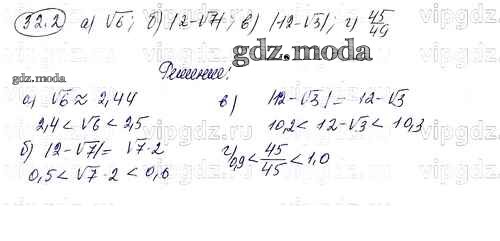 32.2 а) √6; б) |2-√7|; в) |12-√3|; г) 45/49
gdz.moda
Решение:
а) √6 ≈ 2,44
2,4 < √6 < 2,5
б) |2-√7| = √7-2
0,5 < √7-2 < 0,6
в) |12-√3| = 12-√3
10,2 < 12-√3 < 10,3
г) 0,9 < 45/45 < 1,0